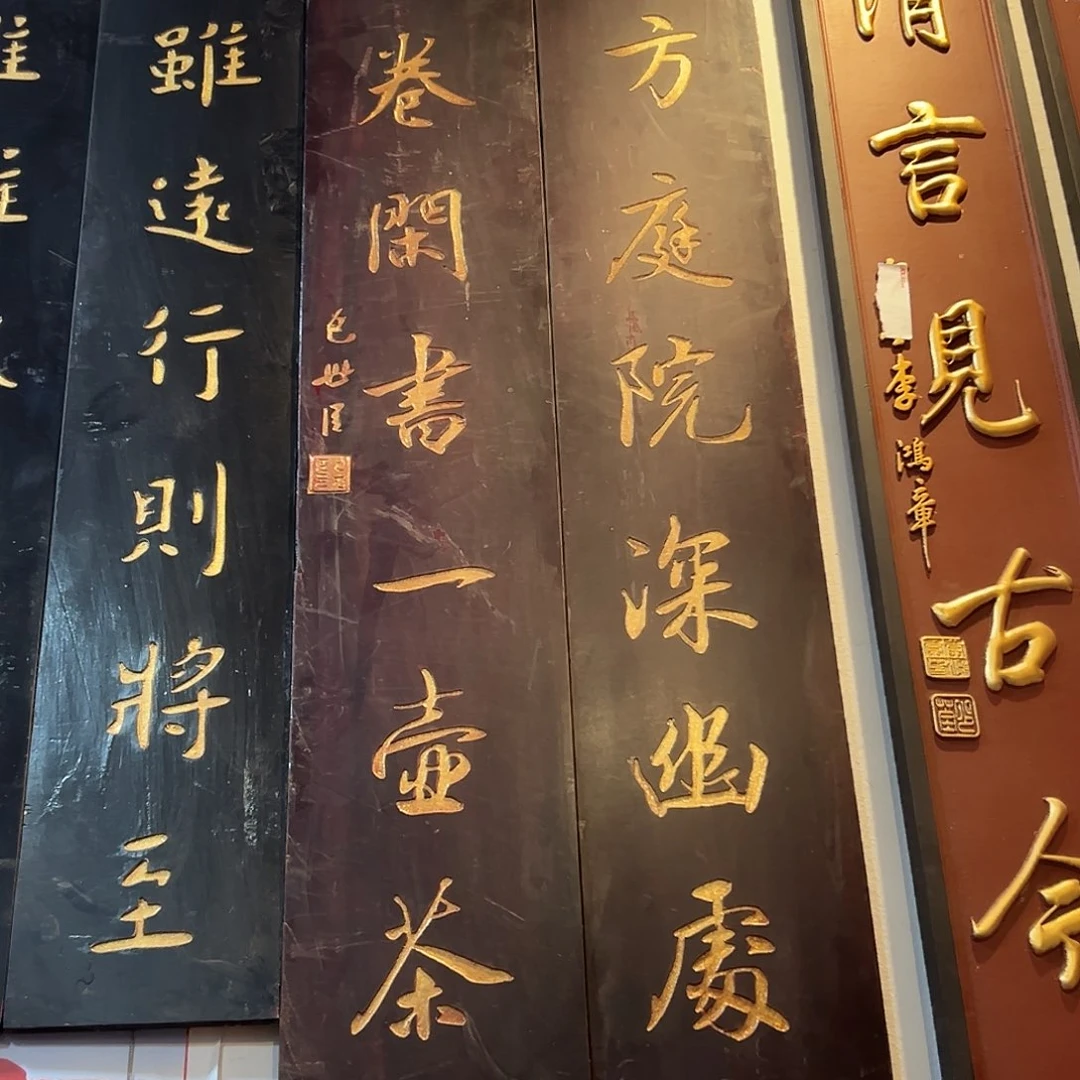 清言見古今
李鴻章
方庭院深幽處
卷閑書一壺茶
包世臣
雖遠行則將至